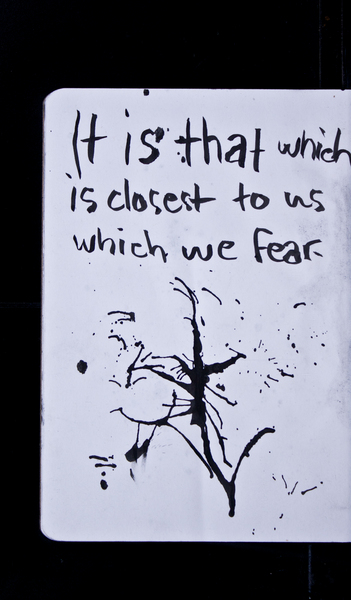 It is that which
is closest to us
which we fear.